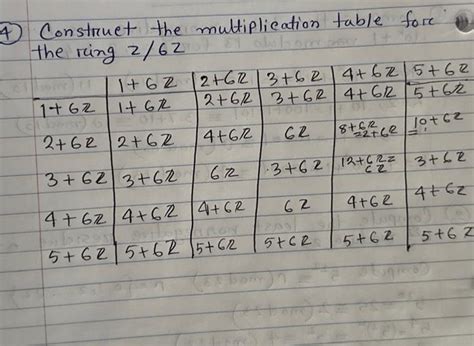 4 Construct the multiplication table for
the ring Z/6Z
1+6Z 2+6Z 3+6Z 4+6Z 5+6Z
1+6Z 1+6Z 2+6Z 3+6Z 4+6Z 5+6Z
2+6Z 2+6Z 4+6Z 6Z 8+6Z =2+6Z 10+6Z
3+6Z 3+6Z 6Z 3+6Z 12+6Z= 6Z 3+6Z
4+6Z 4+6Z 4+6Z 6Z 4+6Z 4+6Z
5+6Z 5+6Z 5+6Z 5+6Z 5+6Z 5+6Z